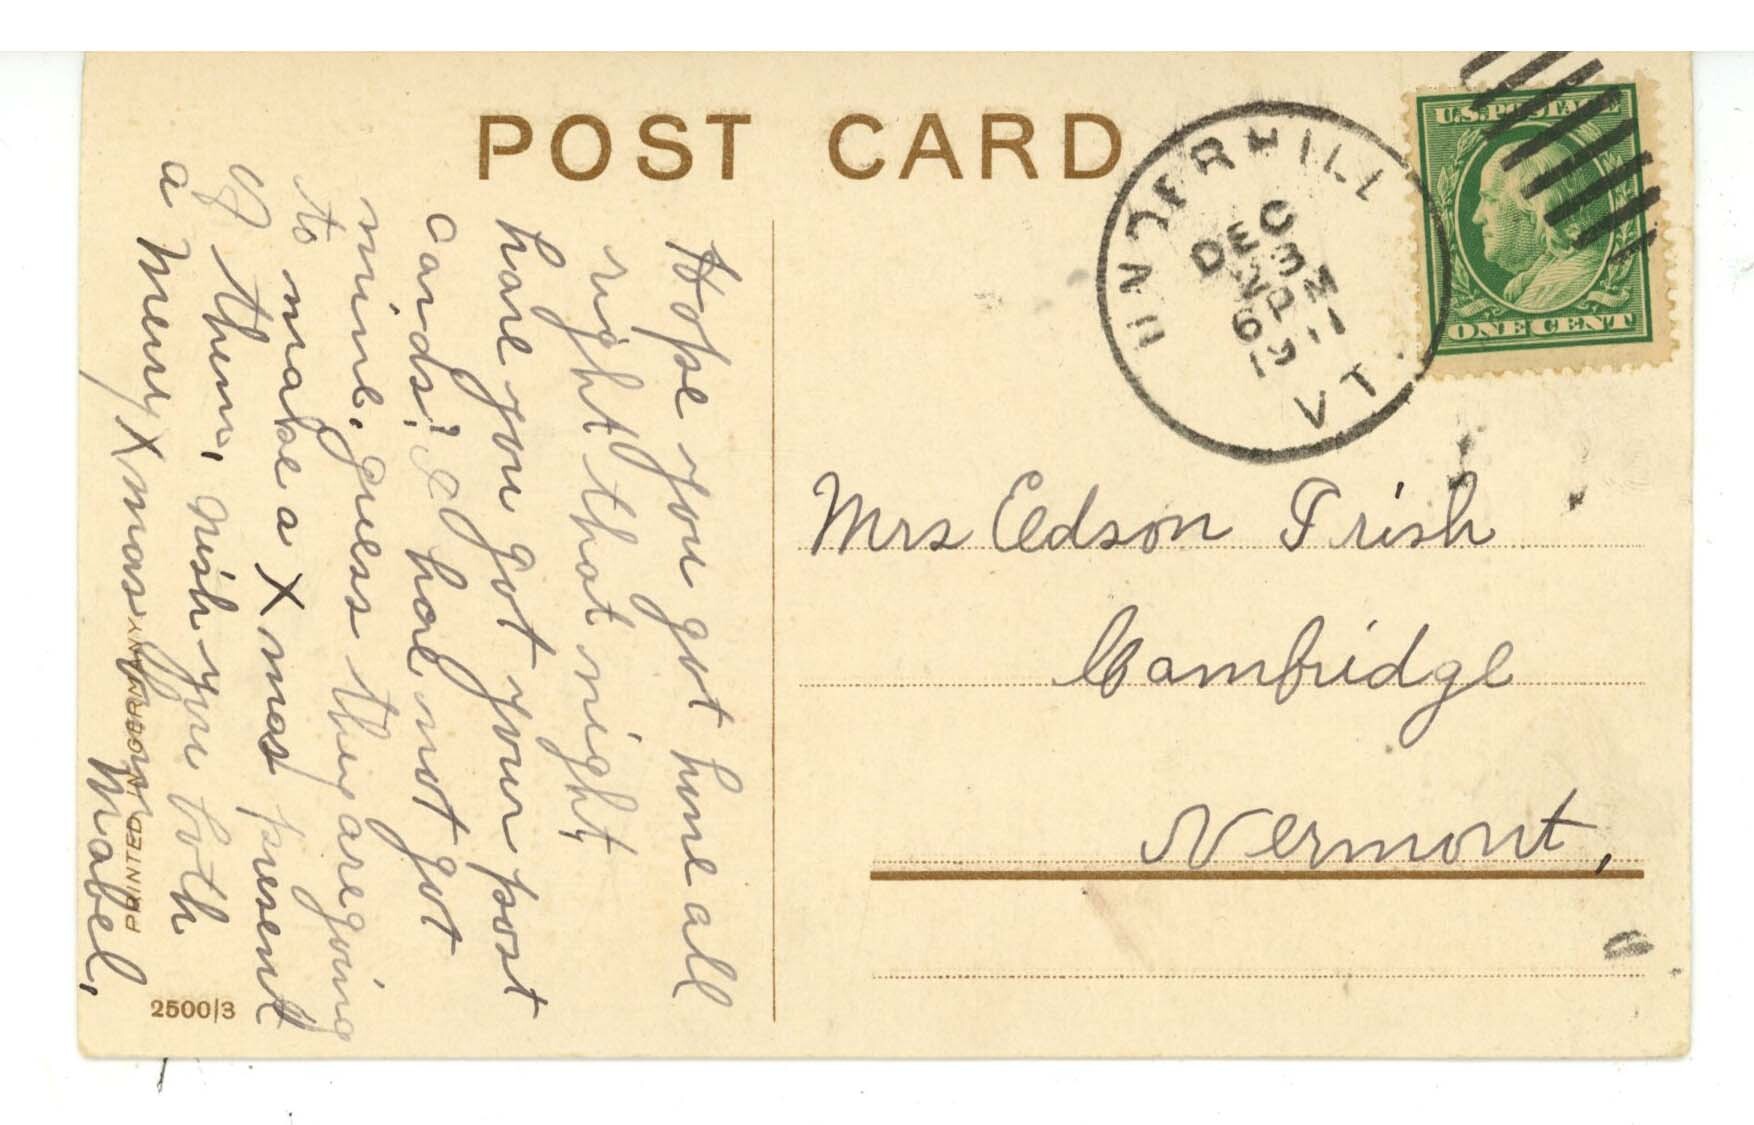 POST CARD
UNDERHILL
DEC
23
6 PM
1911
VT.
U.S. POSTAGE
ONE CENT
Mrs Edson Frish
Cambridge
Vermont,
Hope you got home all
right that night
have you got your post
cards? I have not got
mine. guess they are going
to make a Xmas present
of them, Wish you both
a Merry Xmas from
Mabel.
PRINTED IN GERMANY
2500/3